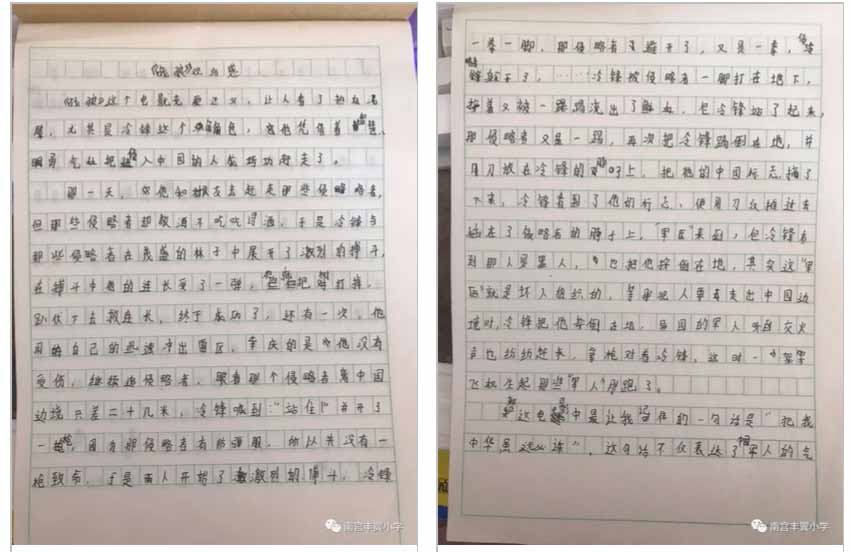 《战狼》观后感
《战狼》这个电影意义，让人看了热血沸
腾，尤其是冷锋这个角色，他凭借着
勇气把入中国的人成功赶走了。
那一天，他和战友去赶走那些侵略者，
但那些侵略者却敬酒不吃吃罚酒，于是冷锋与
那些侵略者在茂盛的林子中展开了激烈的搏斗，
在搏斗中他的连长受了一弹，把打掉，
趴伏下去救连长，终于成功了，还有一次，他
用自己的迅速冲出雷区，幸庆的是他没有
受伤，继续追侵略者，眼看那个侵略者离中国
边境只差二十几米，冷锋喊到：“站住！”并开了
一枪，因为那侵略者有防弹服，所以并没有一
枪致命，于是两人开始了激烈的搏斗，冷锋
一拳一脚，那侵略者避开了，又是一拳，
锋躲开了，……冷锋被侵略者一脚打在地下，
接着又被一踢踢流出了鲜血，但冷锋站了起来，
那侵略者又是一踢，再次把冷锋踢倒在地，并
用刀放在冷锋的脖子上，把他的中国标志摘了
下来，冷锋看到了他的行为，便用刀反捅过去
插在了侵略者的脖子上，“军医”来到，但冷锋看
到那人是黑人，也把他按倒在地，其实这“军
医”就是坏人组织的，拿那人要走出中国边
境时，冷锋把他按倒在地，异国的军人听到交火
声也纷纷赶来，拿枪对着冷锋，这时一架架
飞机飞起那些“军人”跑了。
这电影中最让我记住的一句话是“犯我
中华虽远必诛”，这句话不仅表达了军人的气
南宫丰翼小学
南宫丰翼小学